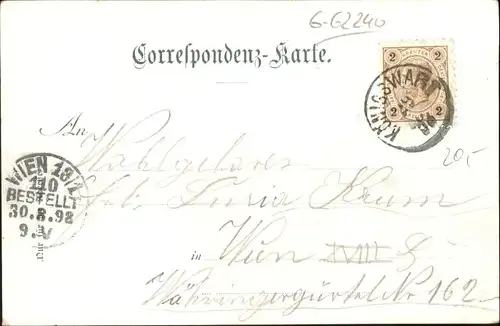 6-62240
Correspondenz-Karte.
2 2
2 2
KÖNIGSWART
An
Wahlgeboren
Frl. Luria Krum
in Wien XVIII
Währingergürtel No 162
20,-
WIEN 18/1
110
BESTELLT
30.8.98
9.V